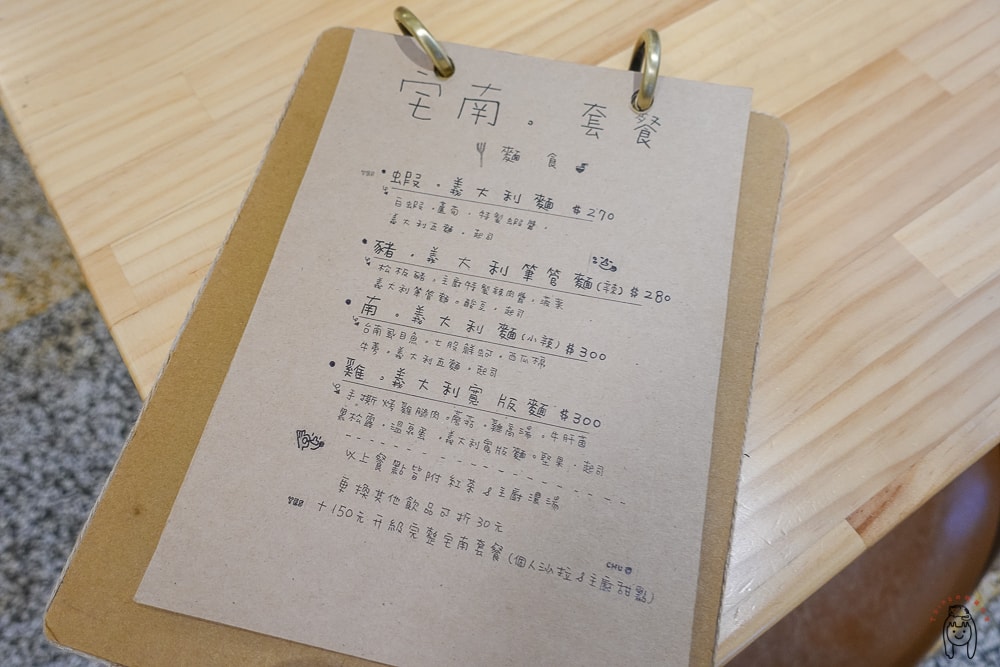 宅南。套餐
麵食
蝦。義大利麵 $270
白蝦。蘆筍。特製蝦醬。
義大利直麵。起司
豬。義大利筆管麵(辣) $280
松板豬。主廚特製豬肉醬。菠菜
義大利筆管麵。酸豆。起司
南。義大利麵(小辣) $300
台南虱目魚。七股鮮蚵。西瓜棉
牛蒡。義大利直麵。起司
雞。義大利寬版麵 $300
手撕烤雞腿肉。蘑菇。雞高湯。牛肝菌
黑松露。溫泉蛋。義大利寬版麵。堅果。起司
以上餐點皆附紅茶&主廚濃湯
更換其他飲品可折30元
+150元升級完整宅南套餐(個人沙拉&主廚甜點)
CHU